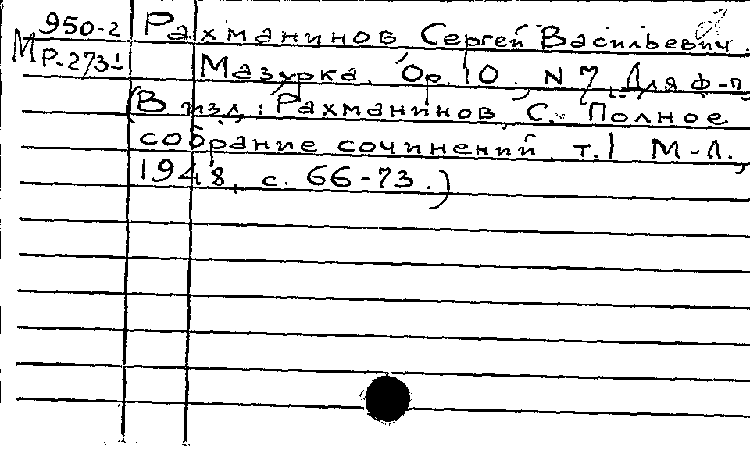 950-2 Рахманинов Сергей Васильевич.
М Р-2731 Мазурка. Op. 10, N 7. Для ф-п.
(В изд.: Рахманинов, С. Полное
собрание сочинений. т.1 М-Л.,
1948, с. 66-73.)